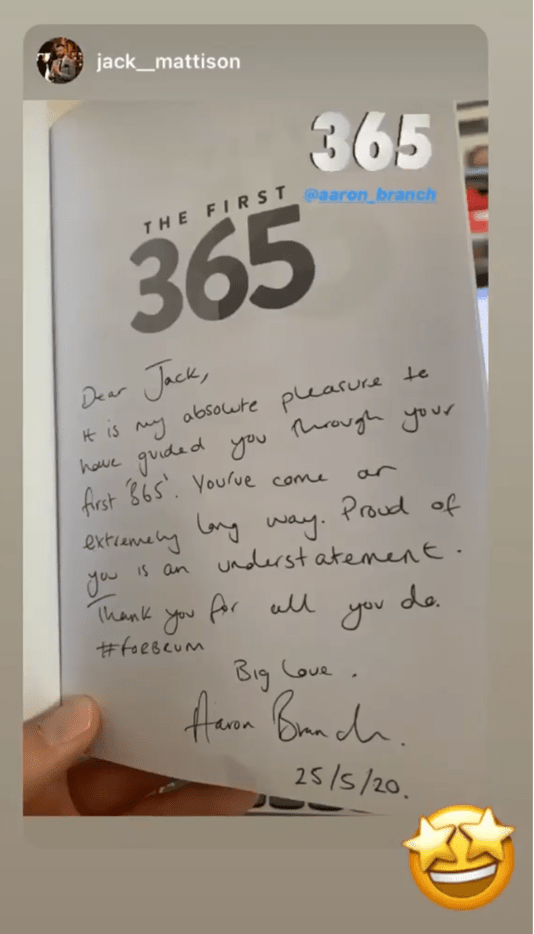 jack__mattison
365
@aaron_branch
THE FIRST
365
Dear Jack,
It is my absolute pleasure to
have guided you through your
first '365'. You've come an
extremely long way. Proud of
you is an understatement.
Thank you for all you do.
#FORBRUM
Big Love.
Aaron Branch.
25/5/20.